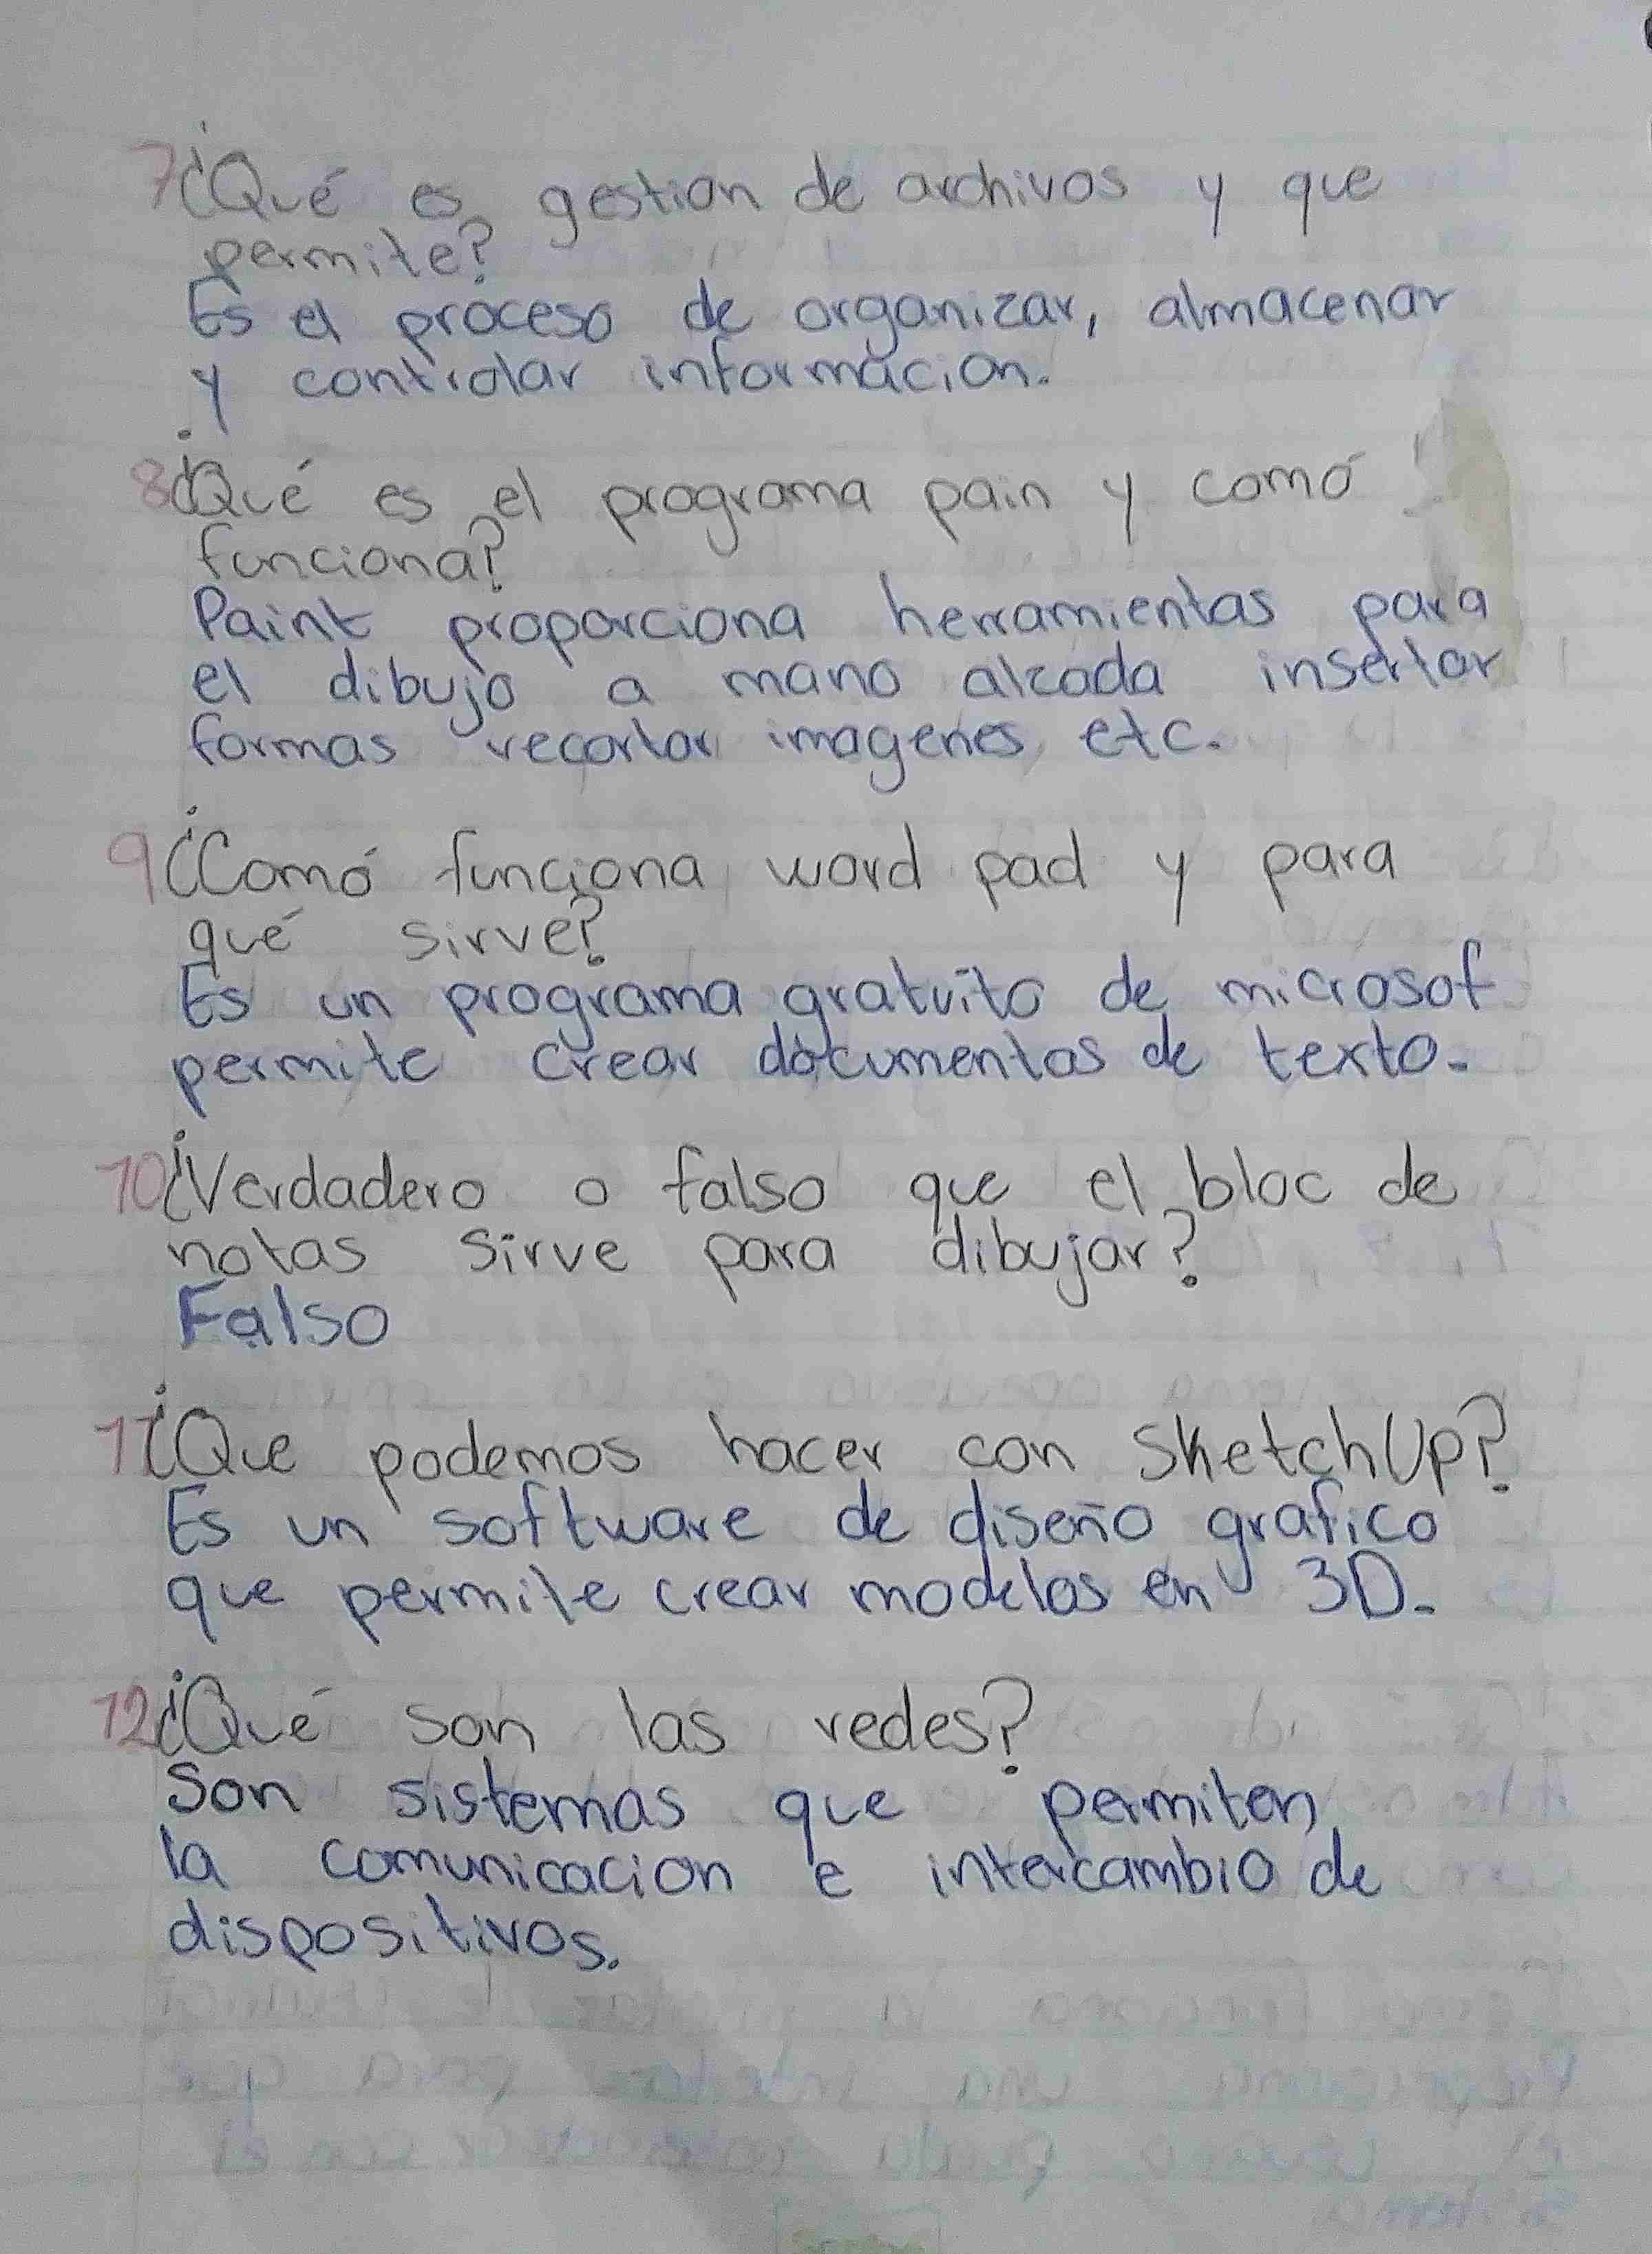 7¿Qué es gestion de archivos y que
permite?
Es el proceso de organizar, almacenar
y controlar informacion.
8¿Qué es el programa pain y comó
funciona?
Paint proporciona herramientas para
el dibujo a mano alzada insertar
formas recortar imagenes etc.
9¿Comó funciona word pad y para
qué sirve?
Es un programa gratuito de microsof
permite crear documentos de texto.
10¿Verdadero o falso que el bloc de
notas sirve para dibujar?
Falso
11¿Que podemos hacer con SketchUp?
Es un software de diseño grafico
que permite crear modelos en 3D.
12¿Qué son las redes?
Son sistemas que permiten
la comunicacion e intercambio de
dispositivos.